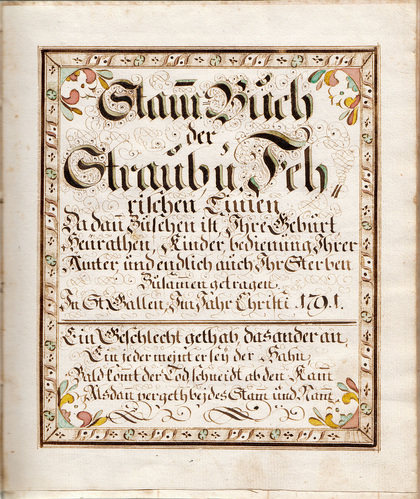 Stam̅-Buch
der
Straubn̅. Feh„
rischen Linien
Da dañ Zusehen ist, Ihre Geburt
Heürathen, Kinder, bedienung Ihrer
Ämter, und endlich auch Ihr Sterben
Zusamen getragen.
In St Gallen, Im Jahr Christi. 1791.
Ein Geschlecht geth ab, das ander an,
Ein jeder meint er seÿ der Hahn,
Bald kom̅t der Tod, schneidt ab den Kam̅
Alsdañ vergeth beÿdes Stam̅ und Nam̅